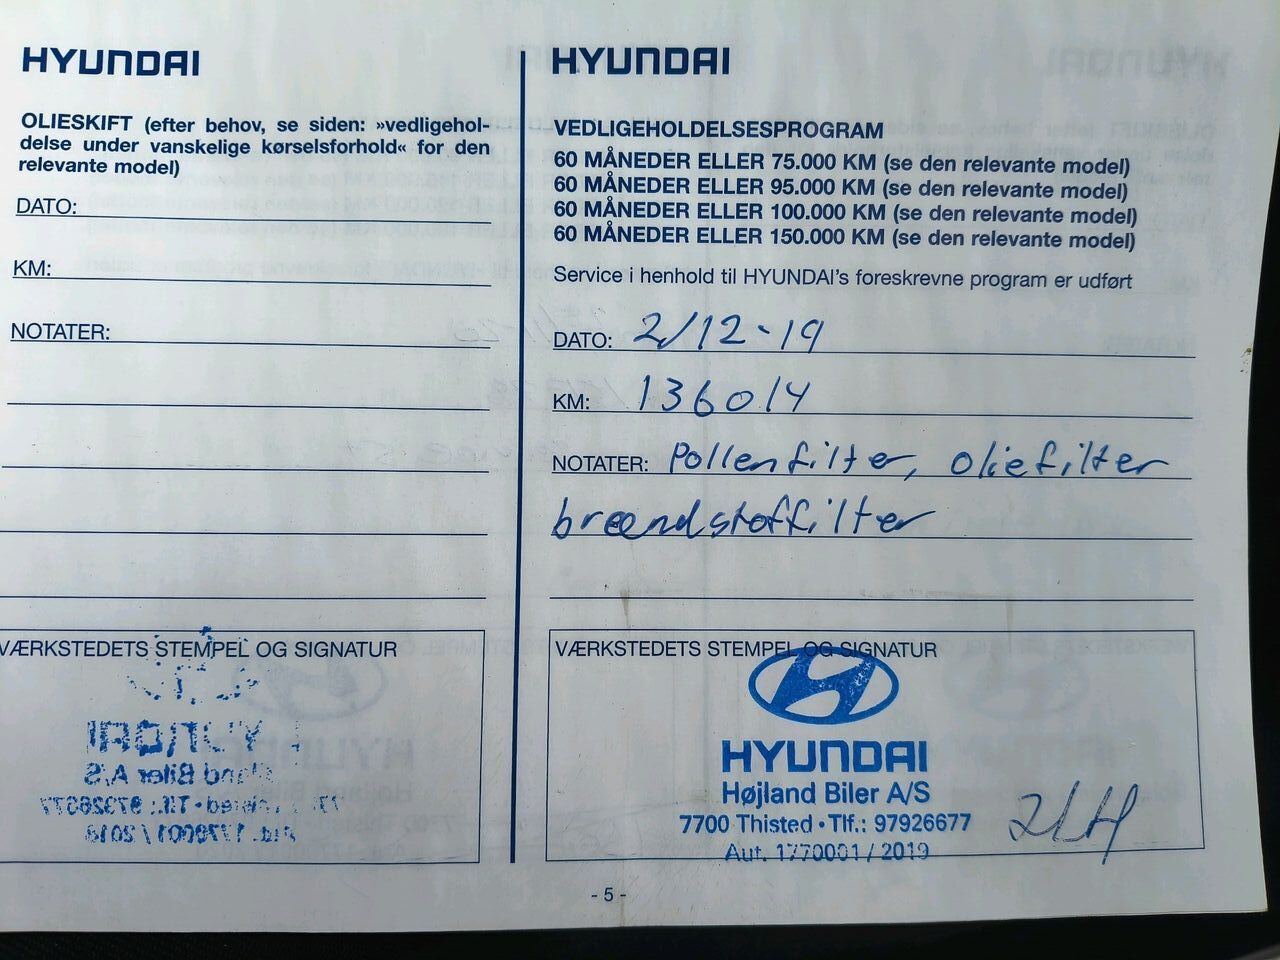 HYUNDAI
OLIESKIFT (efter behov, se siden: »vedligehol-
delse under vanskelige kørselsforhold« for den
relevante model)
DATO:
KM:
NOTATER:
VÆRKSTEDETS STEMPEL OG SIGNATUR
HYUNDAI
VEDLIGEHOLDELSESPROGRAM
60 MÅNEDER ELLER 75.000 KM (se den relevante model)
60 MÅNEDER ELLER 95.000 KM (se den relevante model)
60 MÅNEDER ELLER 100.000 KM (se den relevante model)
60 MÅNEDER ELLER 150.000 KM (se den relevante model)
Service i henhold til HYUNDAI's foreskrevne program er udført
DATO: 2/12-19
KM: 136014
NOTATER: Pollenfilter, oliefilter
brændstoffilter
VÆRKSTEDETS STEMPEL OG SIGNATUR
HYUNDAI
Højland Biler A/S
7700 Thisted • Tlf.: 97926677
Aut. 1770001 / 2019
- 5 -